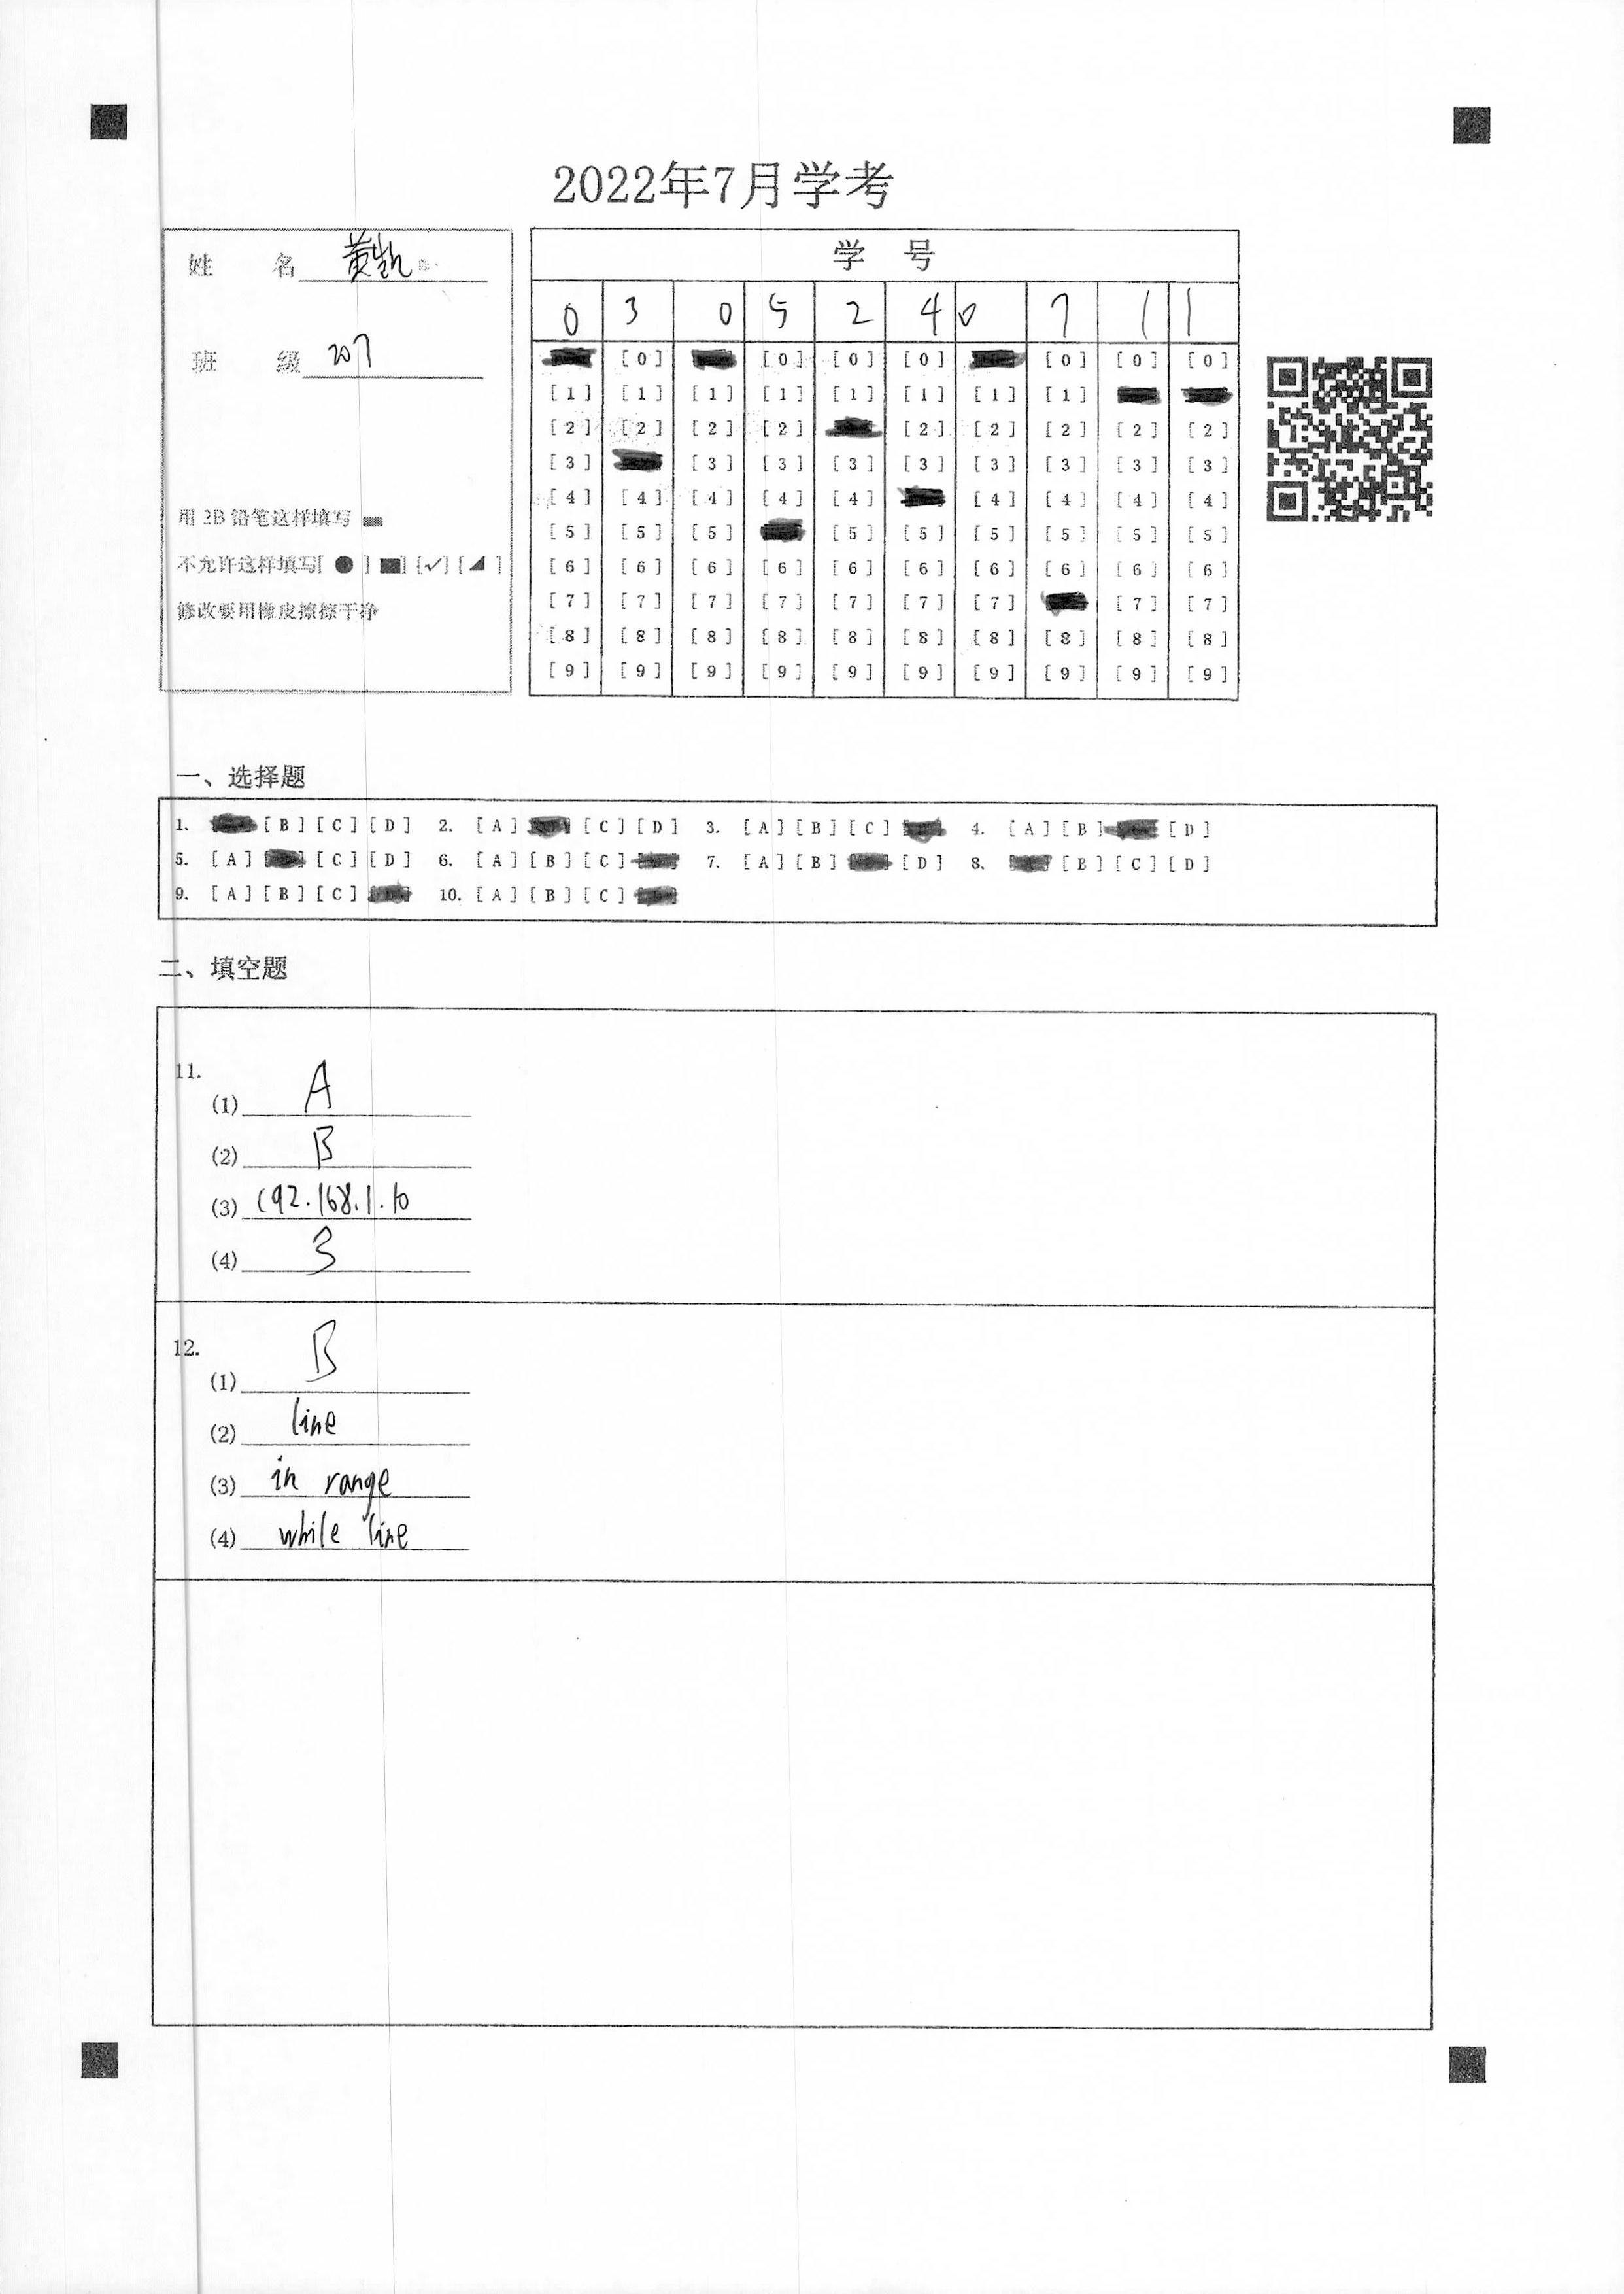 2022年7月学考
姓 名 黄凯
班 级 207
用2B铅笔这样填写
不允许这样填写[ ● ] [■] [✓] [◢ ]
修改要用橡皮擦擦干净
学 号
0 3 0 5 2 4 0 7 1 1
[0] [0] [0] [0] [0] [0]
[1] [1] [1] [1] [1] [1] [1] [1]
[2] [2] [2] [2] [2] [2] [2] [2] [2]
[3] [3] [3] [3] [3] [3] [3] [3] [3]
[4] [4] [4] [4] [4] [4] [4] [4] [4]
[5] [5] [5] [5] [5] [5] [5] [5] [5]
[6] [6] [6] [6] [6] [6] [6] [6] [6] [6]
[7] [7] [7] [7] [7] [7] [7] [7] [7]
[8] [8] [8] [8] [8] [8] [8] [8] [8] [8]
[9] [9] [9] [9] [9] [9] [9] [9] [9] [9]
一、选择题
1. [B] [C] [D] 2. [A] [C] [D] 3. [A] [B] [C] 4. [A] [B] [D]
5. [A] [C] [D] 6. [A] [B] [C] 7. [A] [B] [D] 8. [B] [C] [D]
9. [A] [B] [C] 10. [A] [B] [C]
二、填空题
11.
(1) A
(2) B
(3) 192.168.1.10
(4) 3
12.
(1) B
(2) line
(3) in range
(4) while line